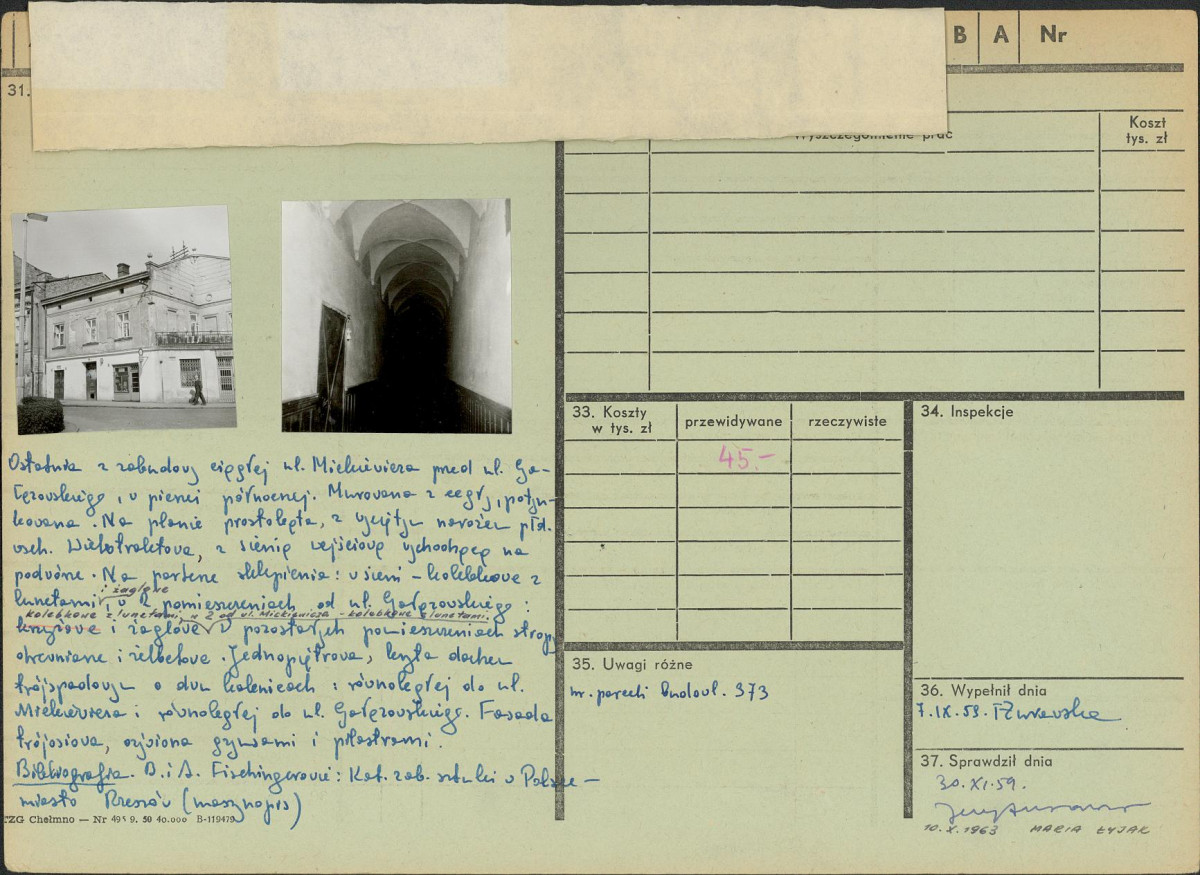 B A Nr
31.
Wyszczególnienie prac
Koszt
tys. zł
Ostatnia z zabudowy ciągłej ul. Mickiewicza przed ul. Ga-
łęzowskiego, w pierzei północnej. Murowana z cegły, potyn-
kowana. Na planie prostokąta, z ściętym narożem płd.
wsch. Wielotraktowa, z sienią wejściową wychodzącą na
podwórze. Na parterze sklepienia: w sieni – kolebkowe z
i żaglowe
lunetami, w 2 pomieszczeniach od ul. Gałęzowskiego:
kolebkowe z lunetami, w 2 od ul. Mickiewicza - kolebkowe z lunetami.
krzyżowe i żaglowe w pozostałych pomieszczeniach stropy
drewniane i żelbetowe. Jednopiętrowa, kryta dachem
trójspadowym o dwu kalenicach: równoległej do ul.
Mickiewicza i równoległej do ul. Gałęzowskiego. Fasada
trójosiowa, ożywiona gzymsami i pilastrami.
Bibliografia. B. i A. Fischingerowie: Kat. zab. sztuki w Polsce –
miasto Rzeszów (maszynopis)
TZG Chełmno — Nr 495 9. 50 40.000 B-119479
33. Koszty
w tys. zł
przewidywane
rzeczywiste
45.-
34. Inspekcje
35. Uwagi różne
nr. parceli budowl. 373
36. Wypełnił dnia
7.IX.59.
37. Sprawdził dnia
30.XI.59.
10.X.1963 MARIA ŁYJAK